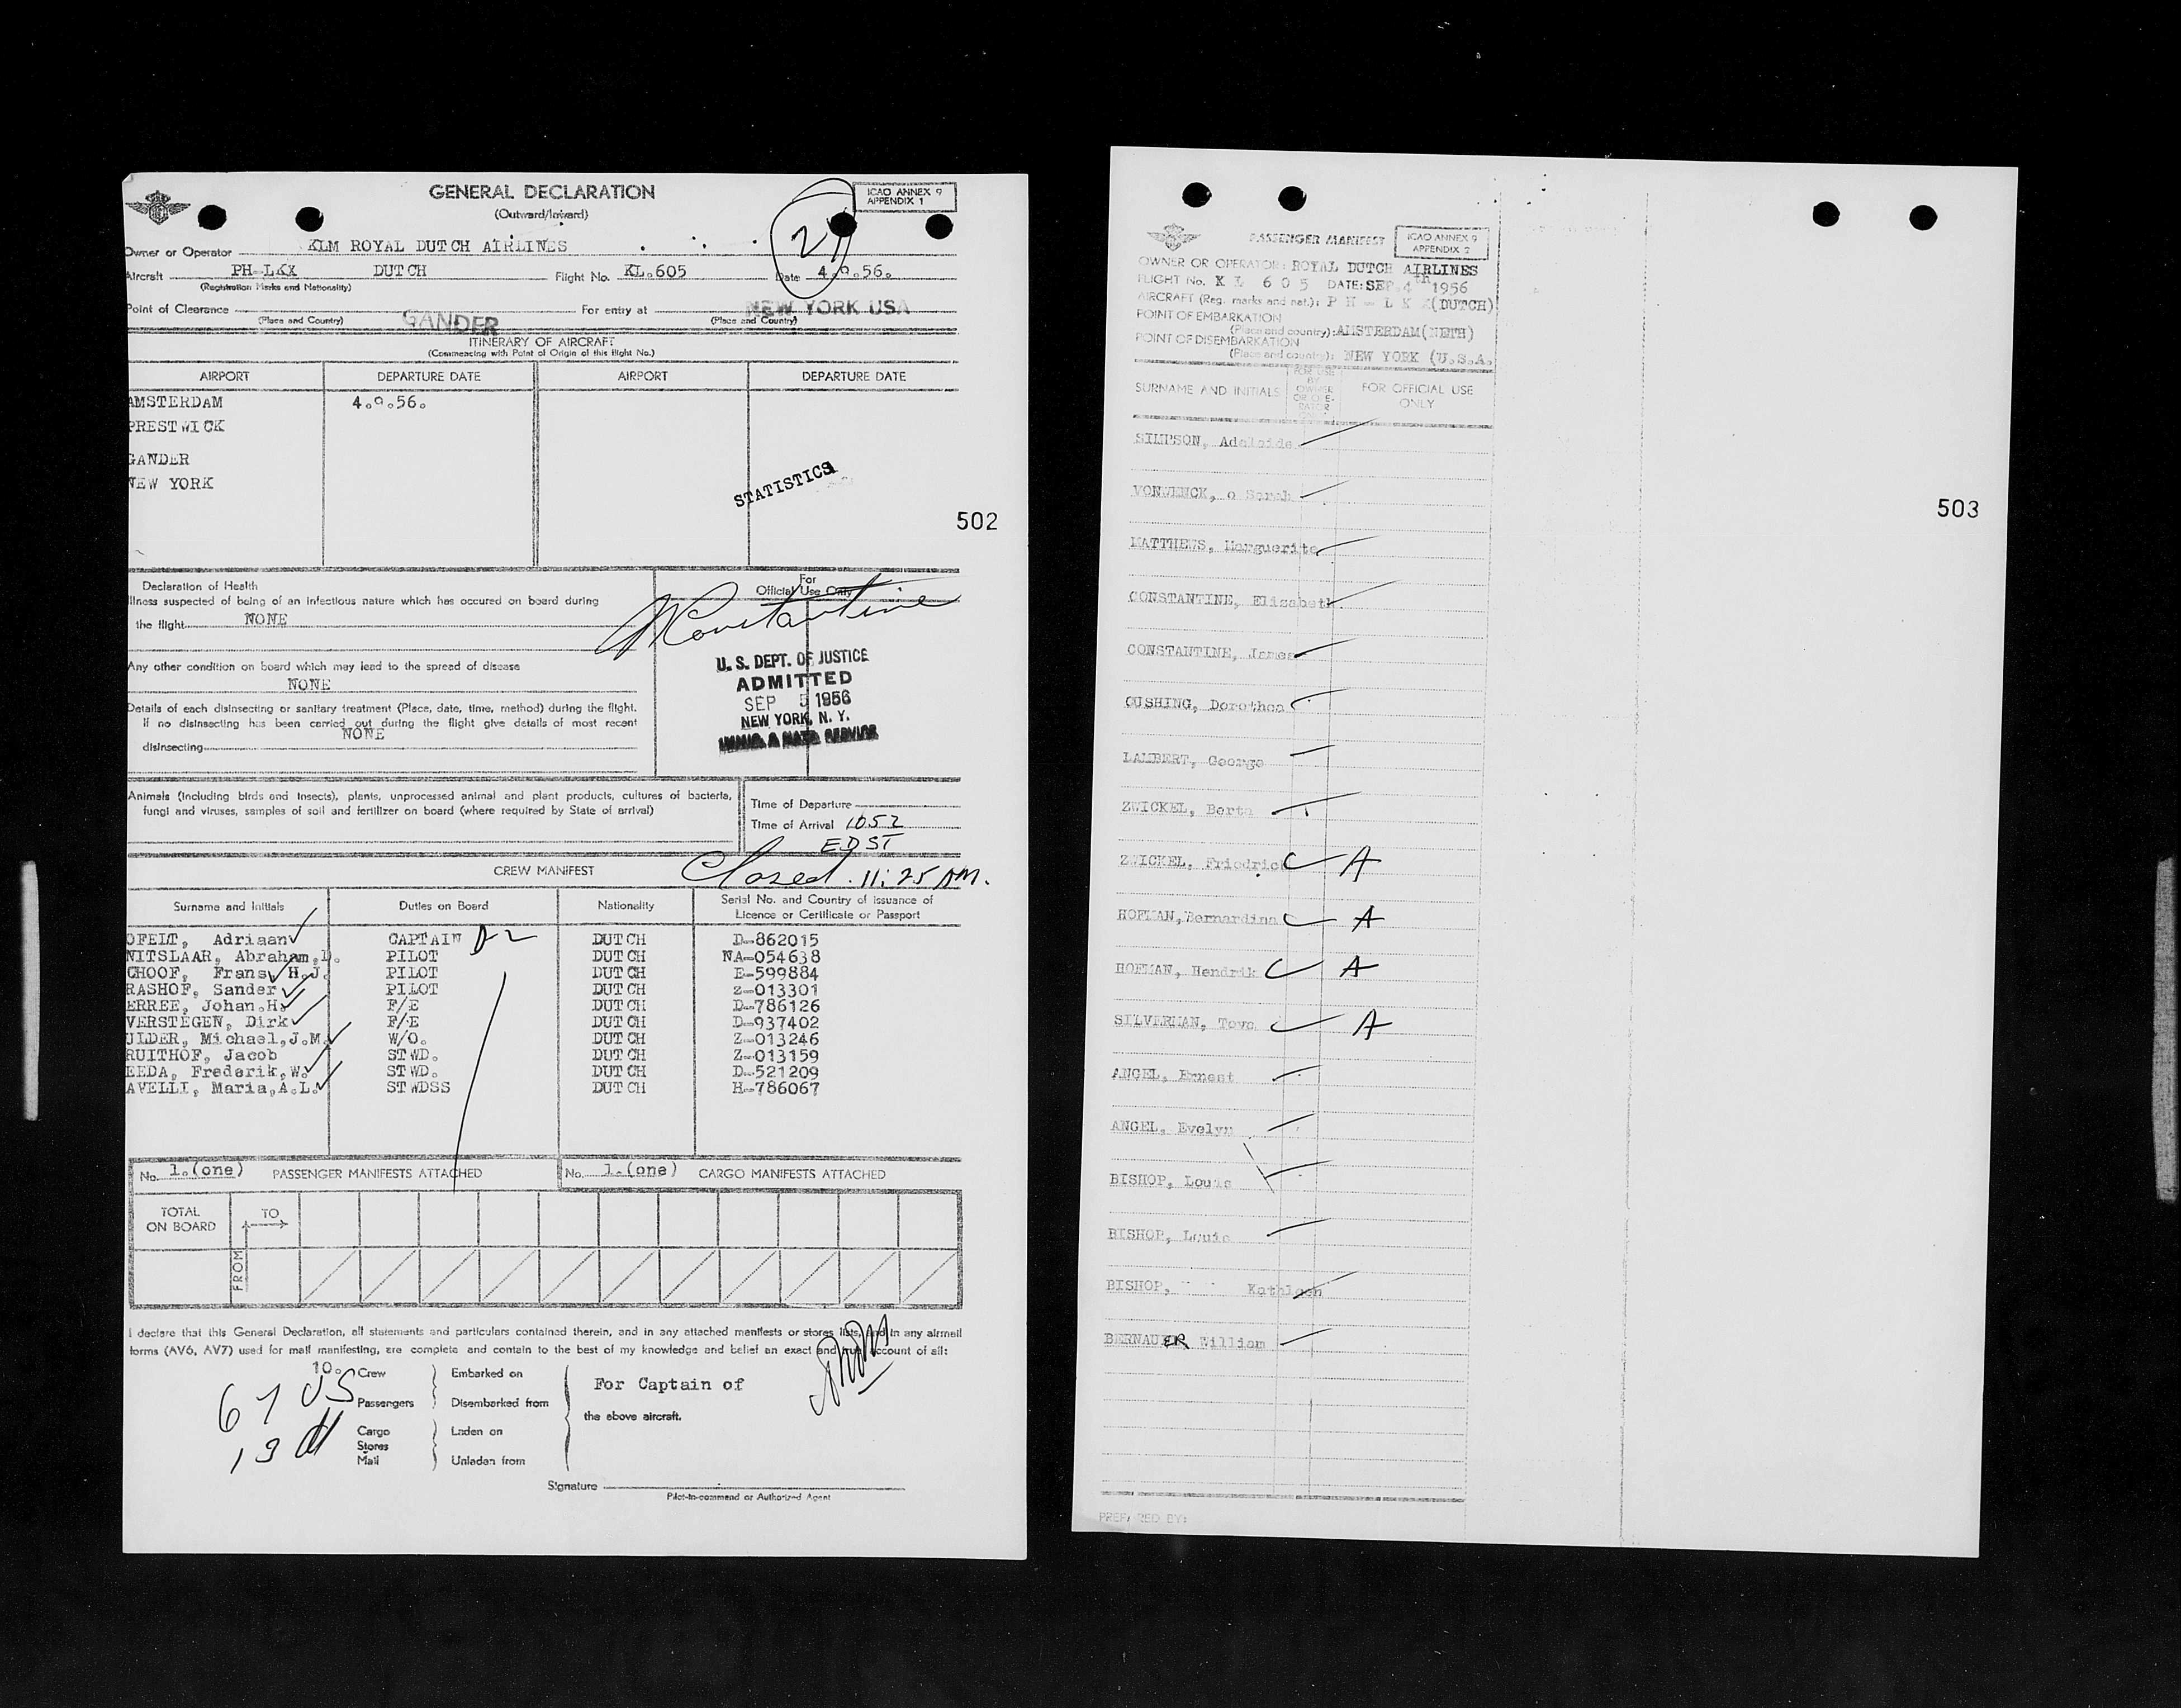 GENERAL DECLARATION
(Outward/Inward)
ICAO ANNEX 9
APPENDIX 1
21
Owner or Operator KLM ROYAL DUTCH AIRLINES
Aircraft PH-LKX DUTCH Flight No. KL.605 Date 4.9.56.
(Registration Marks and Nationality)
Point of Clearance GANDER For entry at NEW YORK USA
(Place and Country) (Place and Country)
ITINERARY OF AIRCRAFT
(Commencing with Point of Origin of this flight No.)
AIRPORT DEPARTURE DATE AIRPORT DEPARTURE DATE
AMSTERDAM 4.9.56.
PRESTWICK
GANDER
NEW YORK
STATISTICS
502
Declaration of Health
Illness suspected of being of an infectious nature which has occured on board during
the flight NONE
For
Official Use Only
Constantine
Any other condition on board which may lead to the spread of disease
NONE
Details of each disinsecting or sanitary treatment (Place, date, time, method) during the flight.
If no disinsecting has been carried out during the flight give details of most recent
disinsecting NONE
U. S. DEPT. OF JUSTICE
ADMITTED
SEP 5 1956
NEW YORK, N. Y.
IMMIG. & NATZ. SERVICE
Animals (including birds and insects), plants, unprocessed animal and plant products, cultures of bacteria,
fungi and viruses, samples of soil and fertilizer on board (where required by State of arrival)
Time of Departure
Time of Arrival 1052
EDST
CREW MANIFEST
Closed. 11:25 AM.
Surname and Initials Duties on Board Nationality Serial No. and Country of issuance of
Licence or Certificate or Passport
OFELT, Adriaan CAPTAIN D-2 DUTCH D-862015
NITSLAAR, Abraham,D. PILOT DUTCH NA-054638
CHOOF, Frans, H.J. PILOT DUTCH E-599884
RASHOF, Sander PILOT DUTCH Z-013301
ERREE, Johan.H. F/E DUTCH D-786126
VERSTEGEN, Dirk F/E DUTCH D-937402
ULDER, Michael,J.M. W/O. DUTCH Z-013246
RUITHOF, Jacob STWD. DUTCH Z-013159
EEDA, Frederik,W. STWD. DUTCH D-521209
AVELLI, Maria,A.L. STWDSS DUTCH H-786067
No. 1.(one) PASSENGER MANIFESTS ATTACHED No. 1.(one) CARGO MANIFESTS ATTACHED
TOTAL
ON BOARD
TO
FROM
I declare that this General Declaration, all statements and particulars contained therein, and in any attached manifests or stores lists, and in any airmail
forms (AV6, AV7) used for mail manifesting, are complete and contain to the best of my knowledge and belief an exact and true account of all:
10. Crew Embarked on
67 US Passengers Disembarked from
13 Cargo Laden on
Stores
Mail Unladen from
For Captain of
the above aircraft.
Signature
Pilot-in-command or Authorized Agent
PASSENGER MANIFEST
ICAO ANNEX 9
APPENDIX 2
OWNER OR OPERATOR: ROYAL DUTCH AIRLINES
FLIGHT No. K L 6 0 5 DATE: SEP.4th 1956
AIRCRAFT (Reg. marks and nat.): P H - L K X (DUTCH)
POINT OF EMBARKATION
(Place and country): AMSTERDAM(NETH)
POINT OF DISEMBARKATION
(Place and country): NEW YORK (U.S.A.
SURNAME AND INITIALS
FOR USE
BY
OWNER
OR OPE-
RATOR
ONLY
FOR OFFICIAL USE
ONLY
503
SIMPSON, Adelaide
VONWENCK, o Sarah
MATTHEWS, Marguerite
CONSTANTINE, Elizabeth
CONSTANTINE, James
CUSHING, Dorothea
LAMBERT, George
ZWICKEL, Berta
ZWICKEL, Friedrich A
HOFMAN, Bernardina A
HOFMAN, Hendrik A
SILVERMAN, Tova A
ANGEL, Ernest
ANGEL, Evelyn
BISHOP, Louis
BISHOP, Louis
BISHOP, Kathleen
BERNAUER William
PREPARED BY: